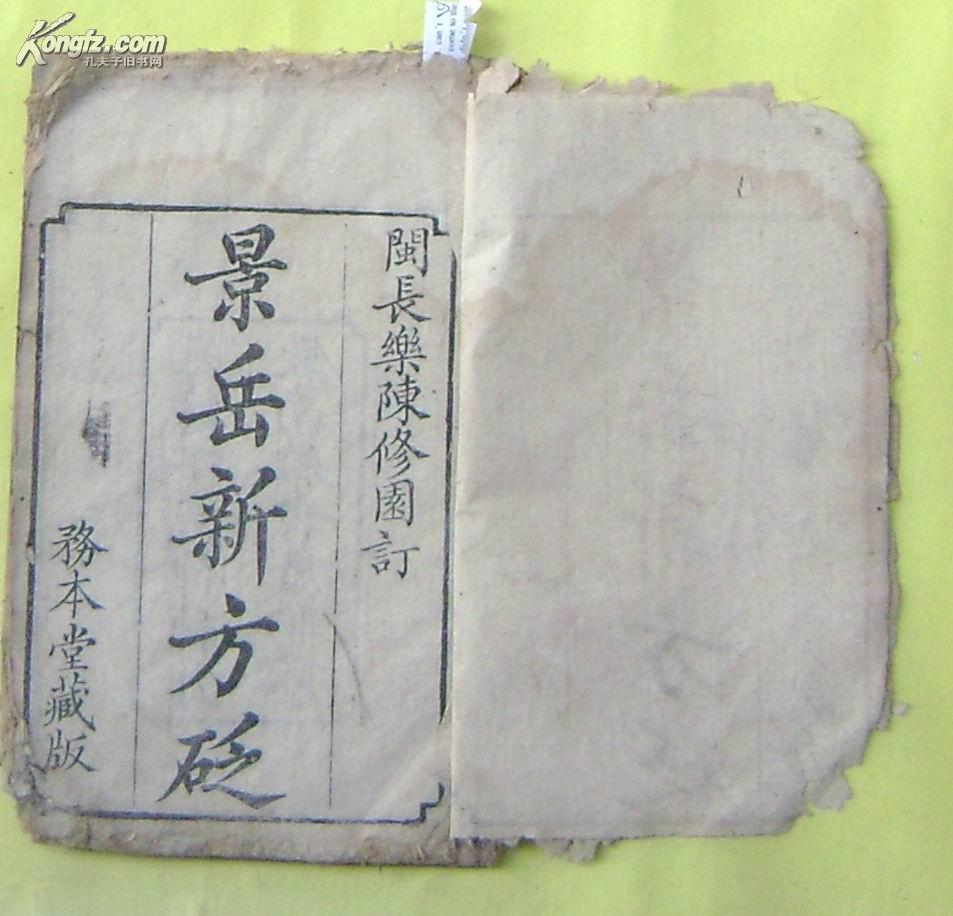 Kongfz.com
孔夫子旧书网
閩長樂陳修園訂
景岳新方砭
務本堂藏版